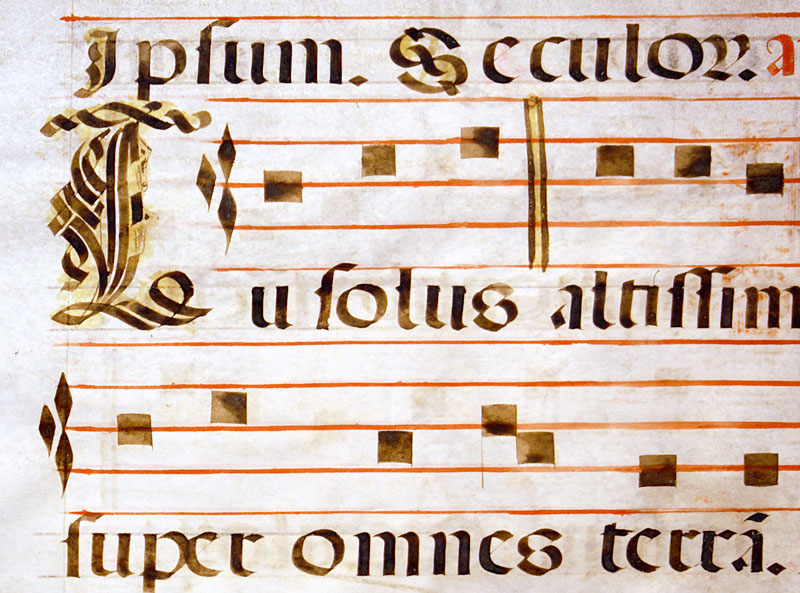 Ipsum. Seculor. a
Tu solus altissim
super omnes terrã.